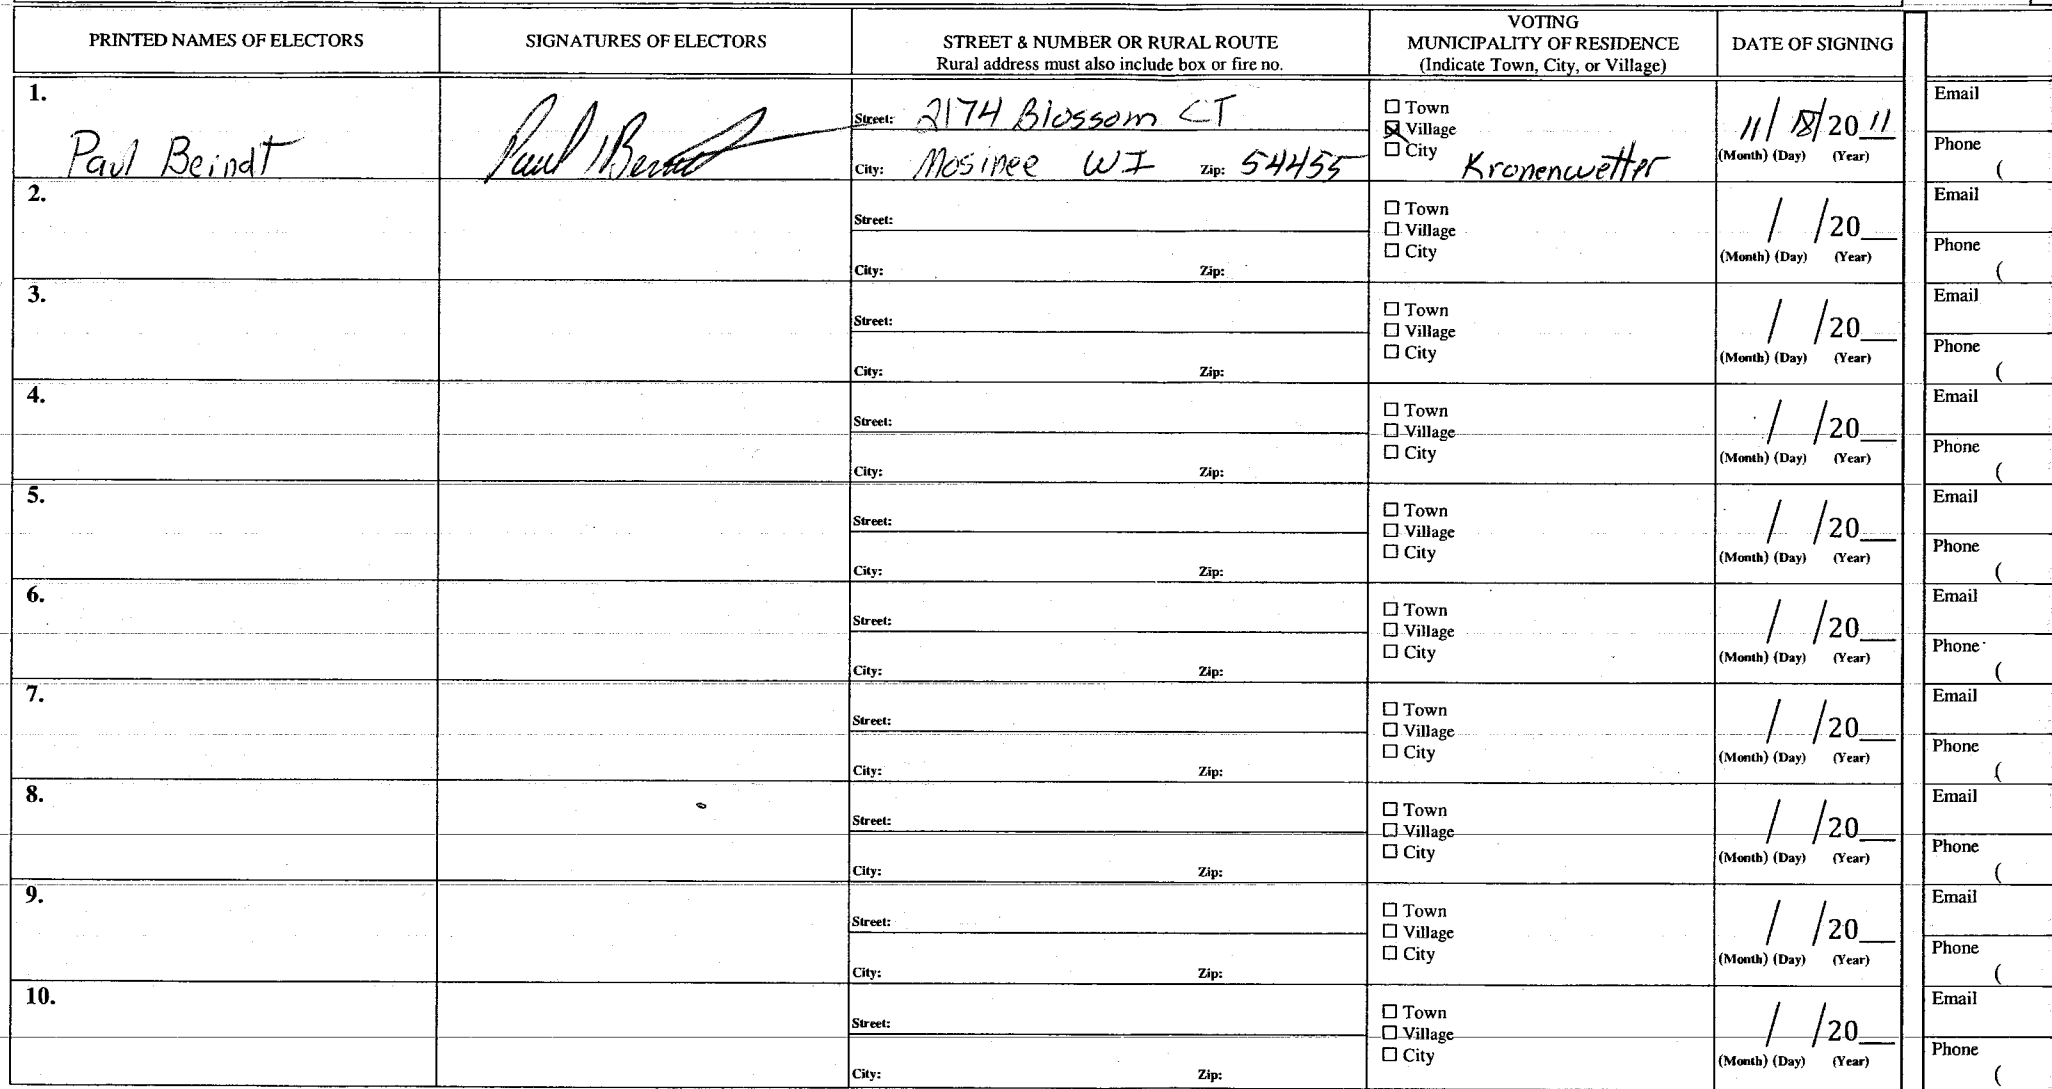 PRINTED NAMES OF ELECTORS
SIGNATURES OF ELECTORS
STREET & NUMBER OR RURAL ROUTE
Rural address must also include box or fire no.
VOTING
MUNICIPALITY OF RESIDENCE
(Indicate Town, City, or Village)
DATE OF SIGNING
1.
Paul Beindt
Paul
Street: 2174 Blossom CT
City: Mosinee WI Zip: 54455
☐ Town
☒ Village
☐ City
Kronenwetter
11/18/2011
(Month) (Day) (Year)
Email
Phone
(
2.
Street:
City: Zip:
☐ Town
☐ Village
☐ City
/ /20__
(Month) (Day) (Year)
Email
Phone
(
3.
Street:
City: Zip:
☐ Town
☐ Village
☐ City
/ /20__
(Month) (Day) (Year)
Email
Phone
(
4.
Street:
City: Zip:
☐ Town
☐ Village
☐ City
/ /20__
(Month) (Day) (Year)
Email
Phone
(
5.
Street:
City: Zip:
☐ Town
☐ Village
☐ City
/ /20__
(Month) (Day) (Year)
Email
Phone
(
6.
Street:
City: Zip:
☐ Town
☐ Village
☐ City
/ /20__
(Month) (Day) (Year)
Email
Phone
(
7.
Street:
City: Zip:
☐ Town
☐ Village
☐ City
/ /20__
(Month) (Day) (Year)
Email
Phone
(
8.
Street:
City: Zip:
☐ Town
☐ Village
☐ City
/ /20__
(Month) (Day) (Year)
Email
Phone
(
9.
Street:
City: Zip:
☐ Town
☐ Village
☐ City
/ /20__
(Month) (Day) (Year)
Email
Phone
(
10.
Street:
City: Zip:
☐ Town
☐ Village
☐ City
/ /20__
(Month) (Day) (Year)
Email
Phone
(